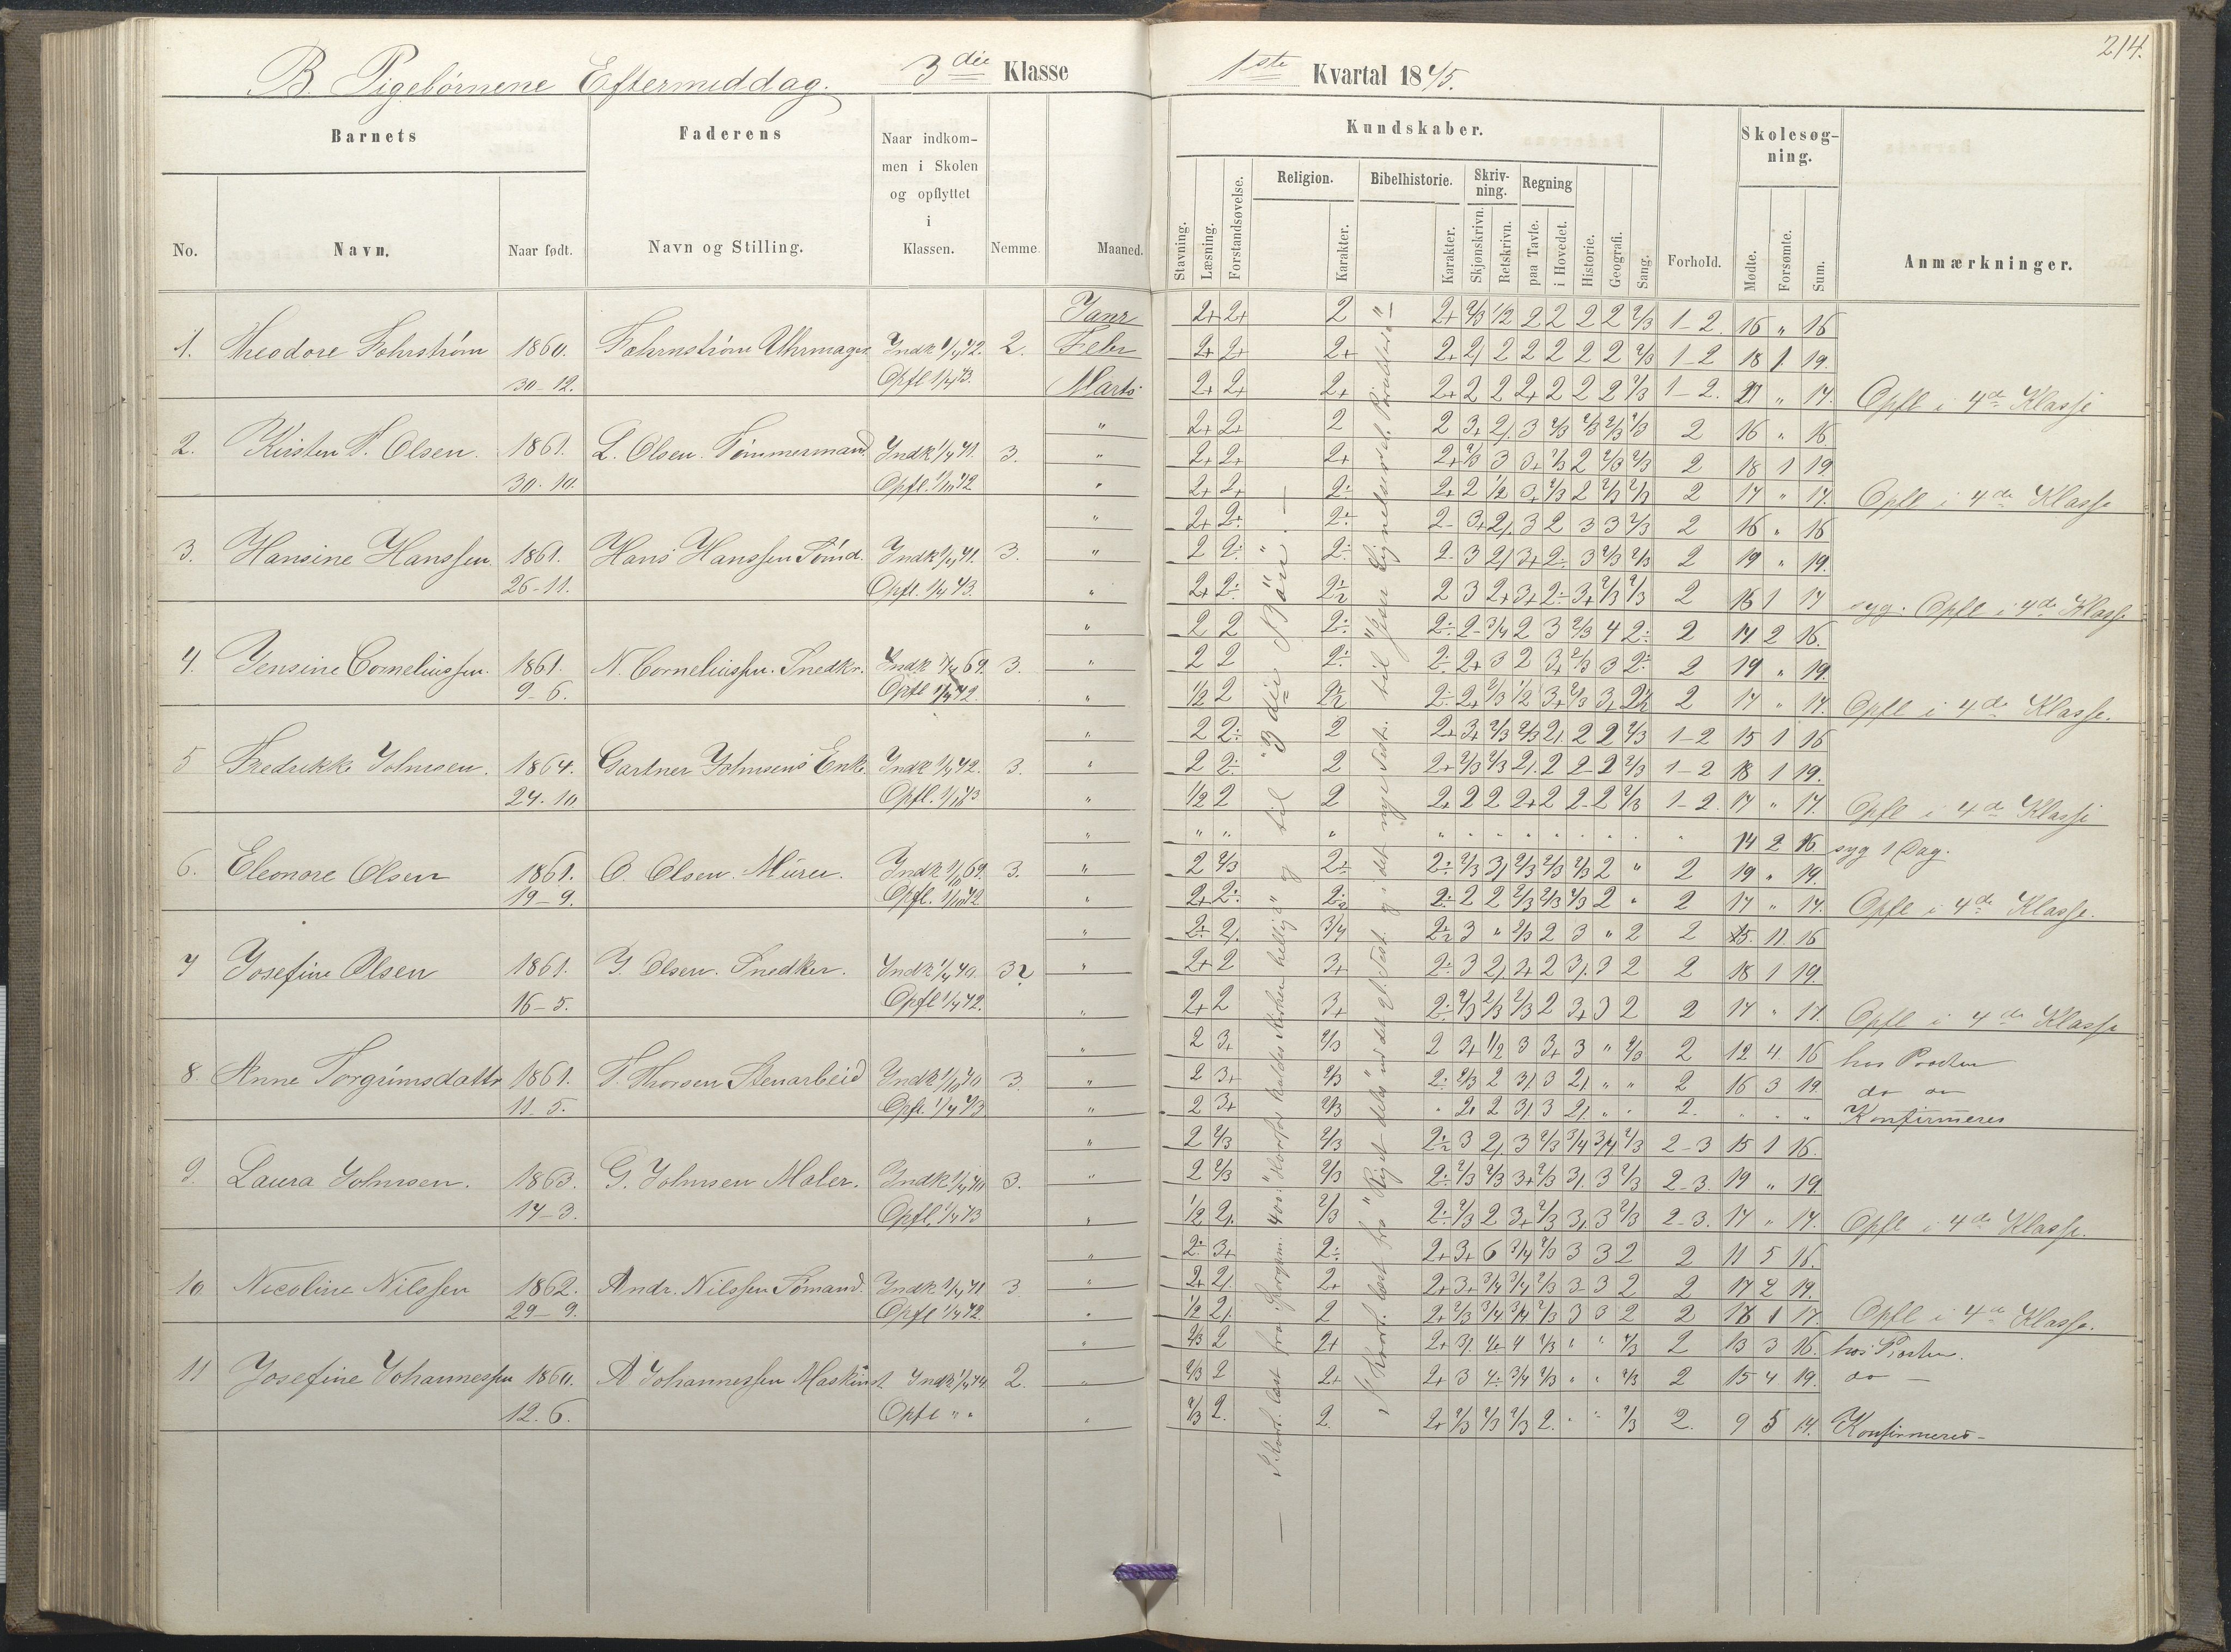 214.
B. Pigebørnene Eftermiddag. 3die Klasse 1ste Kvartal 1875.
Barnets Faderens Naar indkommen i Skolen og opflyttet i Klassen. Nemme. Maaned.
No. Navn. Naar født. Navn og Stilling.
Kundskaber. Skolesøgning.
Stavning. Læsning. Forstandsøvelse. Religion. Karakter. Bibelhistorie. Karakter. Skrivning. Skjønskrivn. Retskrivn. Regning paa Tavle. i Hovedet. Historie. Geografi. Sang. Forhold. Mødte. Forsømte. Sum. Anmærkninger.
Janr 2+ 2+ 2 2+ 2/3 1/2 2 2 2 2 2/3 1-2. 16 " 16
1. Theodore Fohrstrøm 1860. Fohrnstrøm Uhrmager Indk 1/4 72. 2. Febr 2+ 2+ 2+ 2+ 2/ 2 2 2 2 2 2/3 1-2 18 1 19.
30-12. Opfl 1/4 73. Marts 2+ 2+ 2+ 2+ 2 2 2+ 2 2 2 2/3 1-2. " 17. Opfl i 4de Klasse
" 2+ 2+ 2 2 3+ 2/. 3 2/3 2/3 2/3 2/3 2 16 " 16
2. Kirsten T. Olsen. 1861. L. Olsen. Tømmermand Indk 1/4 71. 3. " 2+ 2+ 2+ 2+ 2/3 3 3+ 2/3 2 2/3 2/3 2 18 1 19
30-10. Opfl. 1/10 72 " 2+ 2+ 2÷ 2+ 2 1/2 2/3 2 2/3 2/3 2 17 " 17. Opfl i 4de Klasse
" 2+ 2÷ 2÷ 2- 3+ 2/. 3 2 3 3 2/3 2 16 " 16
3. Hansine Hanssen. 1861. Hans Hanssen Sømd. Indk 1/4 71. 3. " 2 2÷ 2÷ 2- 3 2/ 3+ 2÷ 3 2/3 2/3 2 19 " 19.
26-11. Opfl. 1/4 73. " 2+ 2÷ 2 3 2+ 3+ 2÷ 3+ 2/3 2/3 2 16 1 17 syg. Opfl i 4de Klasse
" 2 2 2÷ 2÷ 2- 3/4 2 3 2/3 4 2÷ 2 14 2 16.
4. Jensine Corneliussen. 1861. N. Corneliussen. Snedkr. Indk 69. 3. " 2 2 2÷ 2÷ 2+ 3 2 3+ 2/3 3 2÷ 2 19 " 19.
9-6. Opfl 1/4 72. " 1/2 2 2÷ 2+ 2/3 1/2 3+ 2/3 3+ 2 17 " 17. Opfl i 4de Klasse.
" 2 2÷ 2 2+ 3+ 2/3 2/3 2/. 2 2 2/3 1-2 15 1 16
5 Fredrikke Johnsen. 1864. Gartner Johnsens Enke Indk 1/4 72. 3. " 2 2÷ 2 2+ 2/3 2/3 2/. 2 2- 2 2/3 1-2 18 1 19.
24-10 Opfl. 1/10 73 " 1/2 2 2 2+ 2 2 2+ 2 2- 2 2/3 1-2. 17 " 17. Opfl i 4de Klasse
" " " " " " " " " " " " " 14 2 16 syg 1 Dag.
6. Eleonore Olsen 1861. O. Olsen. Murer. Indk 69. 3. " 2 2/3 2÷ 2÷ 2/3 3/ 2/3 2/3 2/3 2 " 2 19 " 19.
19-9. Opfl. 1/10 72 " 2+ 2÷ 2÷ 2 2 2/3 2/3 2/3 2 " 2 17 " 17. Opfl i 4de Klasse.
" 2÷ 2/. 3/4 3 " 2/3 2 3 " 2 2 15. 1 16
7 Josefine Olsen 1861. J. Olsen. Snedker. Indk 1/4 70. " 2+ 2 3+ 2÷ 3 2/. 3+ 2 3/. 3 2 2 18 1 19.
16-5. Opfl 1/4 72. " 2+ 2 3+ 2÷ 2/3 2/3 2/3 2 3+ 3 2 2 17 " 17. Opfl i 4de Klasse
" 2 3+ 2/3 2 3+ 1/2 3 3+ 3 " 2/3 2 12 4. 16 hos Provsten
8. Anne Torgrimsdattr 1861. T. Thorsen Stenarbeid Indk 1/10 70 3. " 2 3+ 2/3 2÷ 2/3 2 3/ 3 2/. " " 2 16 3 19 do
11-5. Opfl. 1/4 73 " 2 3+ 2/3 " 2 3/ 3 2/. " " 2. " " " Konfirmeres
" 2 2/3 2/3 3 2/. 3 2/3 3/4 3/4 2/3 2-3 15 1 16.
9. Laura Johnsen. 1863. G. Johnsen Maler. Indk 1/4 3. " 2 2/3 2/3 2÷ 2/3 2/3 3+ 2/3 3/. 3 2/3 2-3. 19 " 19.
17-3. Opfl. 1/4 73 " 1/2 2/. 2/3 2÷ 2/3 2 3+ 2/3 3/. 3 2/3 2-3. 17 " 17. Opfl i 4de Klasse.
" 2÷ 3+ 2÷ 2+ 3+ 6 3/4 2/3 3 3 2 2 11 5 16.
10 Nicoline Nilssen 1862. Andr. Nilssen Sømand. Indk 1/4 71 3 " 2+ 2/. 2+ 2+ 3+ 3/4 3/4 2/3 3 3 2 2 17 2 19.
29-9. Opfl 1/4 72. " 1/2 2/. 2 2+ 2/3 3/4 3/4 2/3 3 3 2 2 16 1 17. Opfl i 4de Klasse.
" 2/3 2 2+ 2+ 3/. 4 4 2/3 " " 2/3 2 13 3 16. hos Provsten.
11 Josefine Johannessen 1860. A Johannessen Maskinst. Indk 1/4 74 2. " 2/3 2 2+ 2+ 3 4÷ 3/4 2/3 " " 2/3 2 15 4 19. do —
12-6. Opfl " " " 2/3 2. 2. 2+ 2/3 2/3 2/3 2. " " 2/3 2. 9 5 14. Konfirmeres-